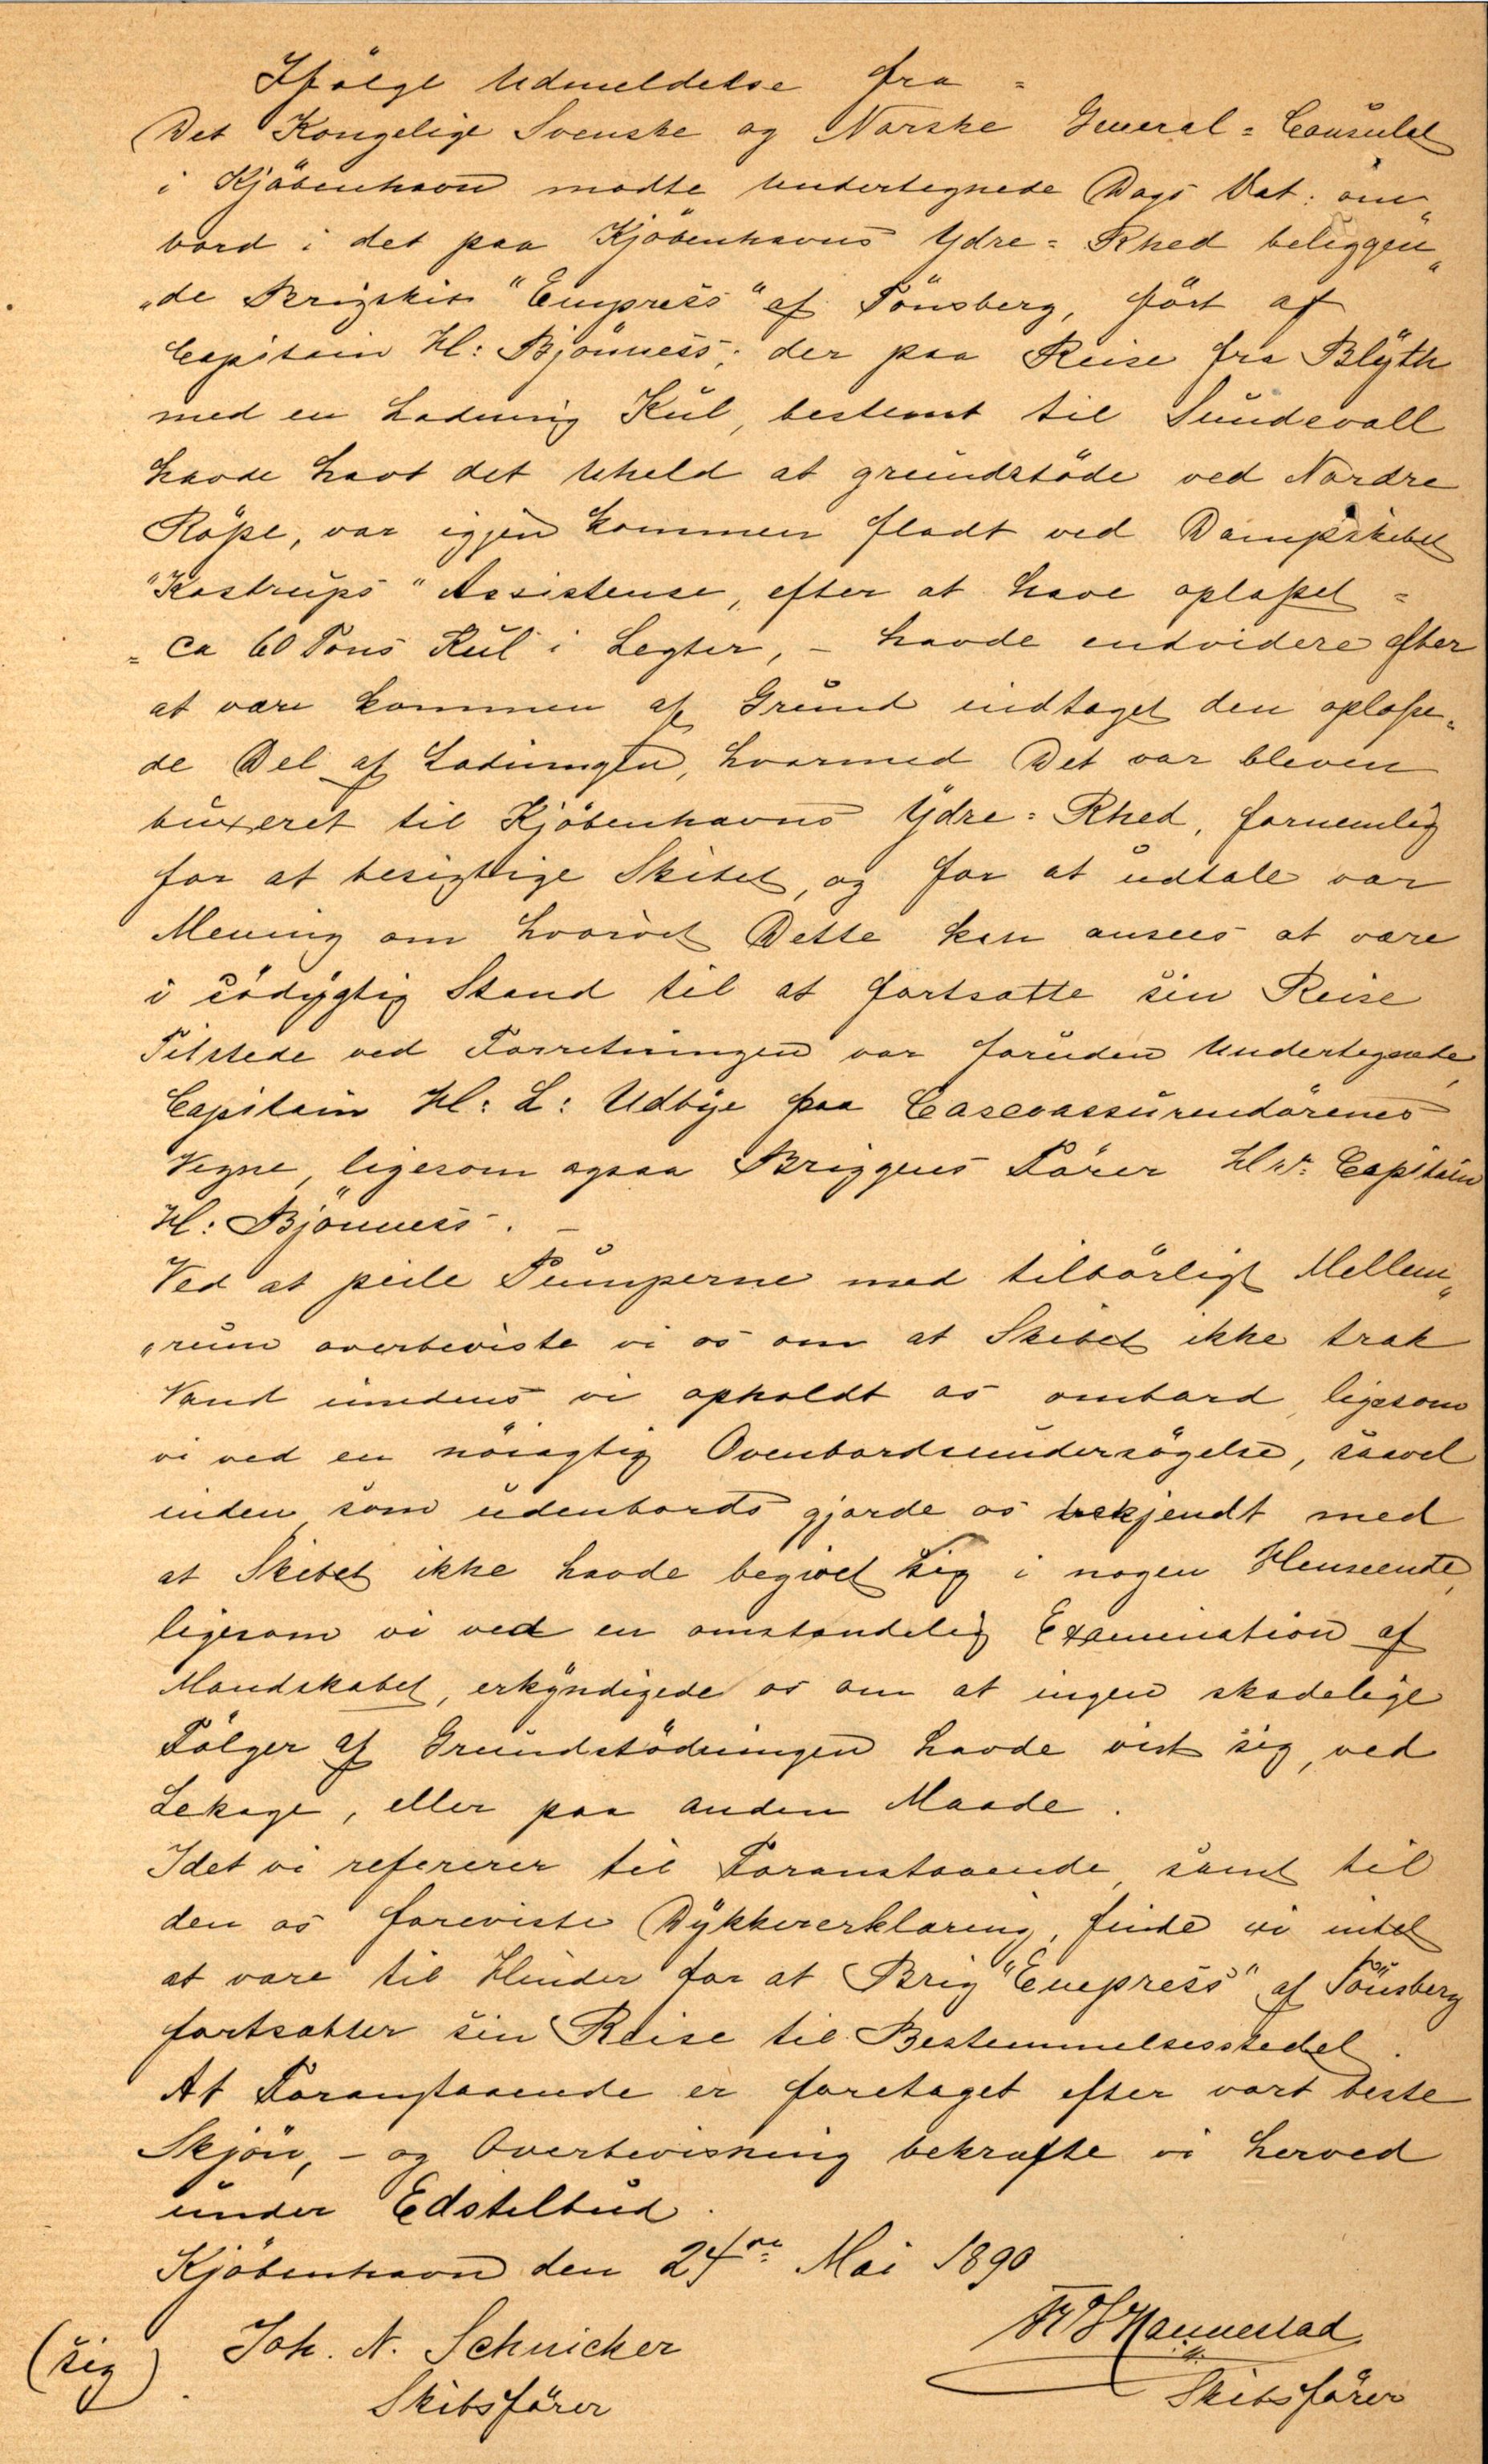 Ifölge Udmeldelse fra =
Det Kongelige Svenske og Norske General = Consulat
i Kjöbenhavn mødte Undertegnede Dags Dat: om„
bord i det paa Kjöbenhavns Ydre = Rhed beliggen„
„de Brigskib "Empress" af Tönsberg, fört af
Capitain H: Bjönness, der paa Reise fra Blÿth
med en Ladning Kul, bestemt til Sundsvall
havde havt det Uheld at grundstöde ved Nordre
Röse, var igjen kommen flodt ved Dampskibet
"Kastrups" Assistense, efter at have oplosset =
„ ca 60 Tons Kul i Legter, - havde endvidere efter
at være kommen af Grund indtaget den oplosse„
de Del af Ladningen, hvormed Det var bleven
buxeret til Kjöbenhavns Ydre = Rhed, fornemlig
for at besigtige Skibet, og for at udtale vor
Mening om hvorvel Dette kan ansees at være
i södygtig Stand til at fortsætte sin Reise
Tilstede ved Forretningen var foruden Undertegnede
Capitain H: L: Udbye paa Cascoassurendörenes
Vegne, ligesom ogsaa Briggens Förer Hr. Capitain
H: Bjönness. -
Ved at peile Pumperne med tilbörligt Mellem„
„rum overbeviste vi os om at Skibet ikke trak
Vand imedens vi opholdt os ombord, ligesom
vi ved en nöiagtig Ovenbordsundersögelse, saavel
inden som udenbords gjorde os bekjendt med
at Skibet ikke havde begivet sig i nogen Henseende,
ligesom vi ved en omstændelig Examination af
Mandskabet, erkÿndigede os om at ingen skadelige
Fölger af Grundstödningen havde vist sig, ved
Lekage, eller paa anden Maade.
Idet vi refererer til Foranstaaende, samt til
den os foreviste Dÿkkererklæring, finde vi intet
at være til Hinder for at Brig "Empress" af Tönsberg
fortsætter sin Reise til Bestemmelsesstedet.
At Foranstaaende er foretaget efter vort beste
Skjön, - og Overbevisning bekræfte vi herved
under Edstilbud.
Kjöbenhavn den 24de Mai 1890
(sig) Joh. N. Schnicker Hannestad
Skibsförer Skibsförer